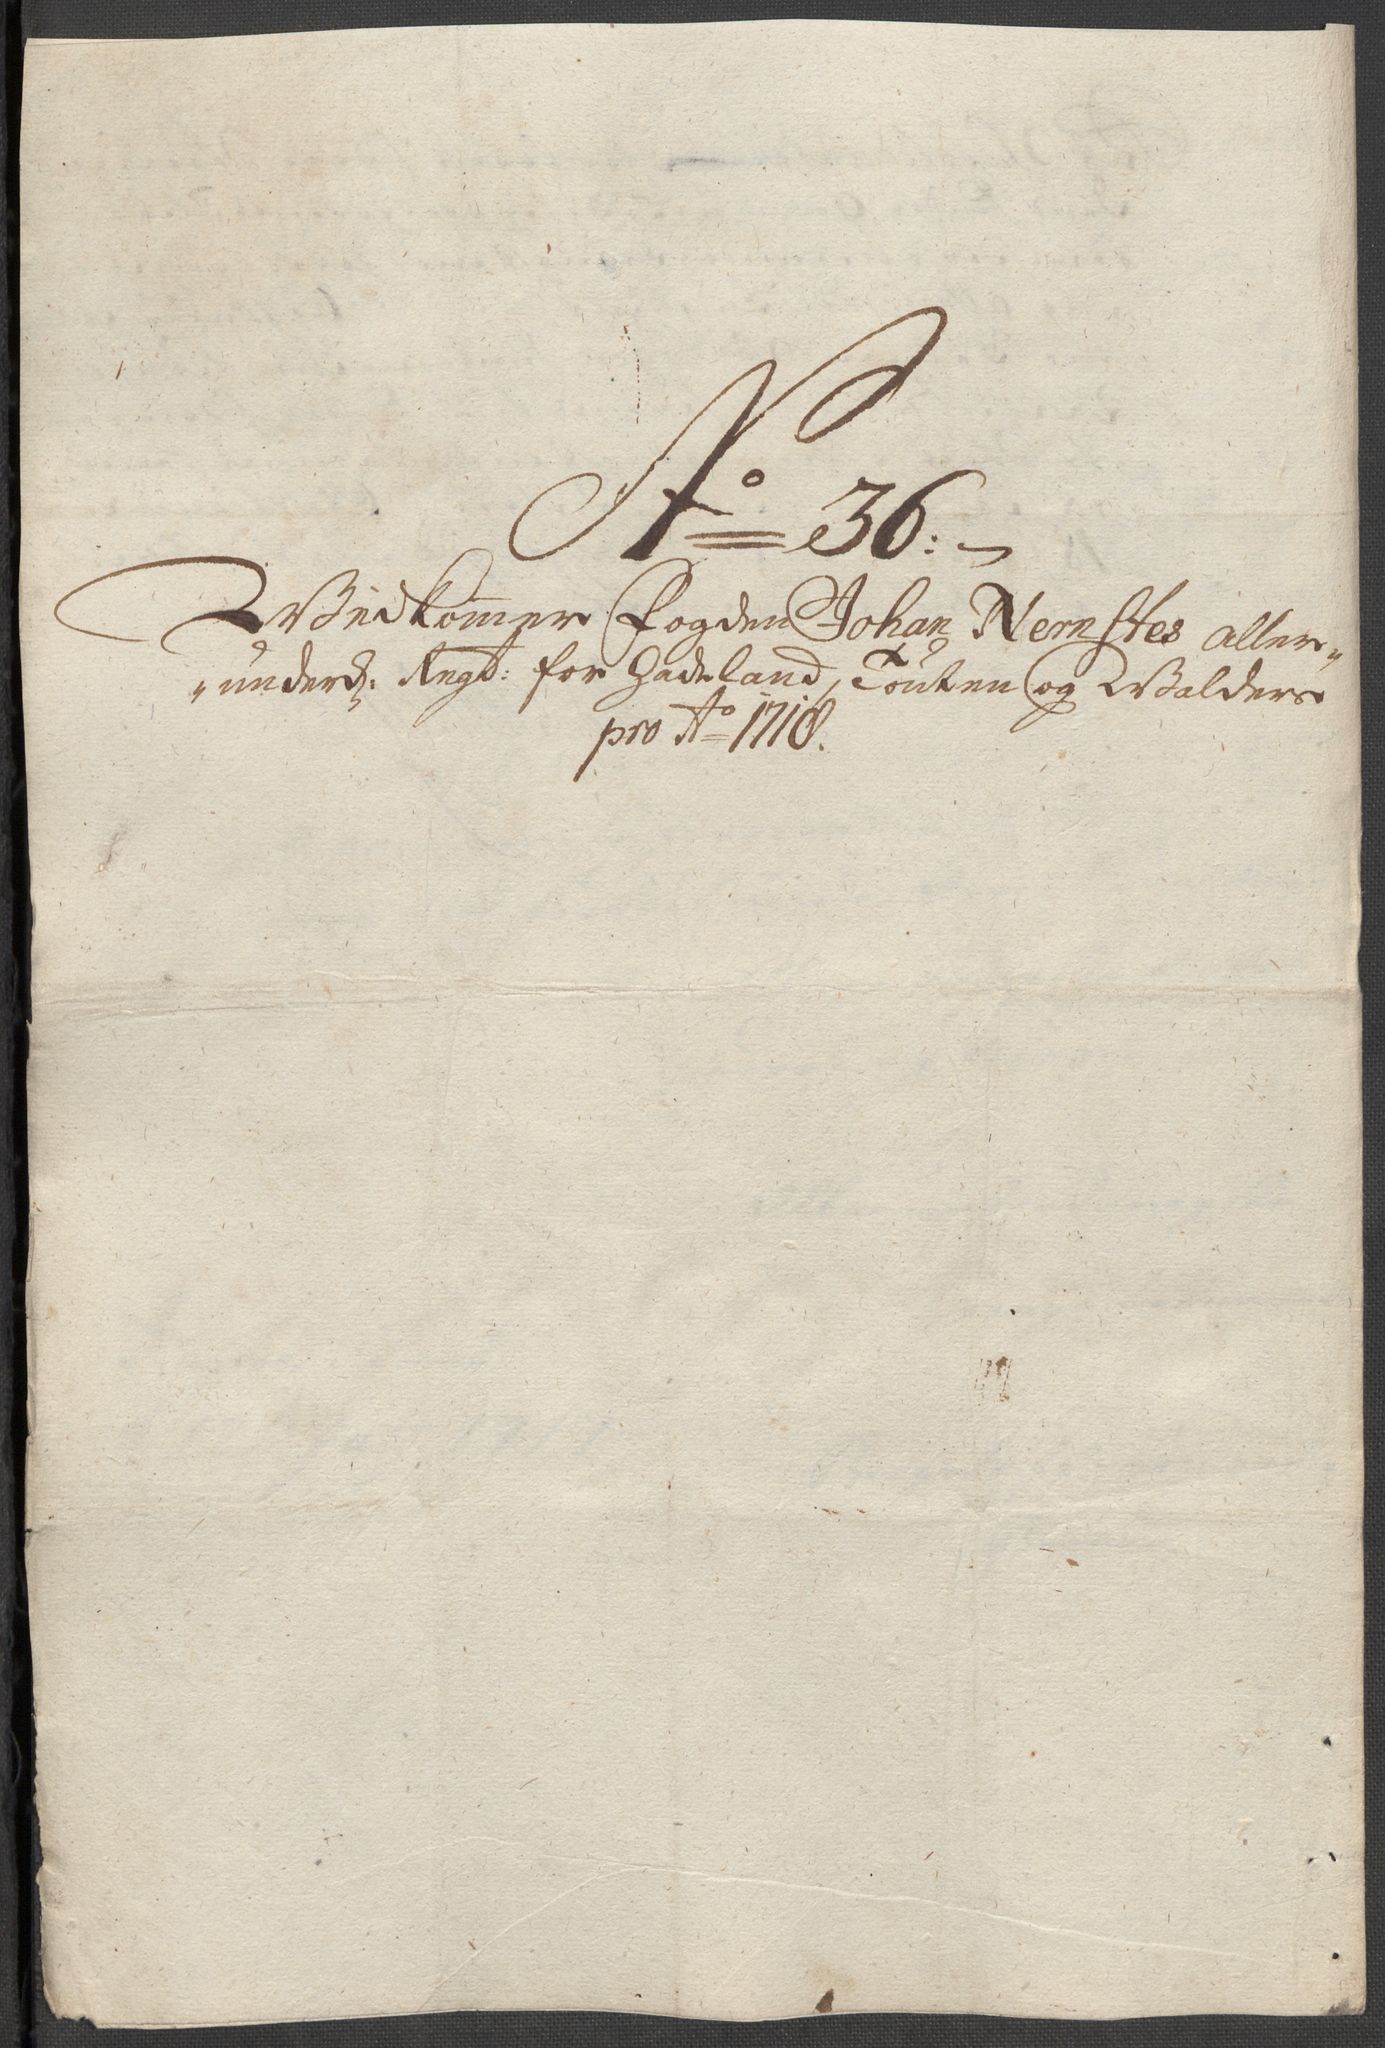 No 36:
Wedkommer Fogden Johan Nernstes aller-
underd: Regb: for Hadeland, Touten og Walders
pro Ao 1718.